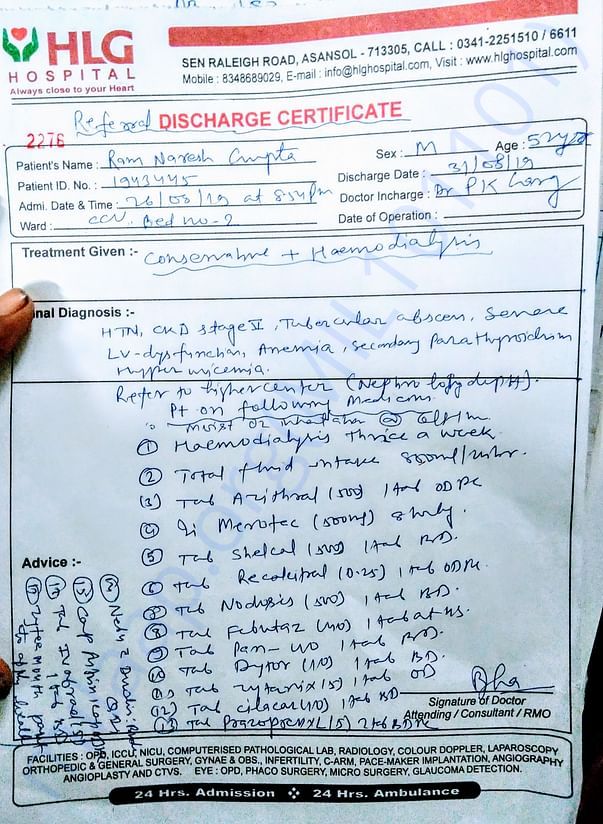 HLG
HOSPITAL
Always close to your Heart
SEN RALEIGH ROAD, ASANSOL - 713305, CALL : 0341-2251510 / 6611
Mobile : 8348689029, E-mail : info@hlghospital.com, Visit : www.hlghospital.com
Referral DISCHARGE CERTIFICATE
2276
Patient's Name : Ram Naresh Gupta Sex : M Age : 52yrs
Patient ID. No. : 1943445 Discharge Date : 31/08/19
Admi. Date & Time : 26/08/19 at Doctor Incharge : Dr PK
Ward : CCU, Bed no-2 Date of Operation :
Treatment Given :- Conservative + Haemodialysis
nal Diagnosis :-
HTN, CKD stage V, Tubercular abscess, Severe
LV-dysfunction, Anemia, Secondary Parathyroidism
Hyperuricemia.
Refer to higher center (Nephrology deptt).
Pt on following Medicine
moist O2 inhalation @
① Haemodialysis thrice a week
② Total fluid intake 800ml/24hr.
③ Tab Azithral (500) 1 tab OD PC
④ Inj Merotec (500mg)
⑤ Tab Shelcal (500) 1 tab BD.
⑥ Tab (0.25) 1 tab OD
⑦ Tab Nodosis (500) 1 tab BD.
⑧ Tab Febutaz (40) 1 tab at HS.
⑨ Tab Pan-40 1 tab BD.
⑩ Tab Dytor (10) 1 tab BD.
⑪ Tab (5) 1 tab OD
⑫ Tab Cilacar (10) 1 tab BD
⑬ Tab Prazopress XL (5) 2 tab BD PC
Advice :-
Signature of Doctor
Attending / Consultant / RMO
FACILITIES : OPD, ICCU, NICU, COMPUTERISED PATHOLOGICAL LAB, RADIOLOGY, COLOUR DOPPLER, LAPAROSCOPY
ORTHOPEDIC & GENERAL SURGERY, GYNAE & OBS., INFERTILITY, C-ARM, PACE-MAKER IMPLANTATION, ANGIOGRAPHY
ANGIOPLASTY AND CTVS. EYE : OPD, PHACO SURGERY, MICRO SURGERY, GLAUCOMA DETECTION.
24 Hrs. Admission ❖ 24 Hrs. Ambulance